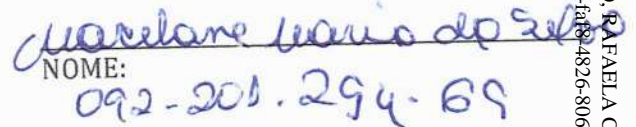 Marilane Maria da Silva
NOME:
092-201.294-69
, RAFAELA C
-faf8-4826-806